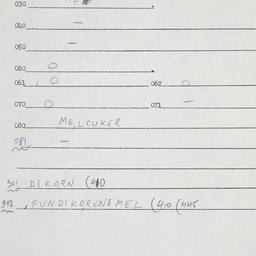 030
040 —
050 —
060 O
061 O 062 O
070 O 071 —
080 ME,LCUKER
081 —
901 DIKORN (410
902 ,FUNDIKORENEMEL (410 (445